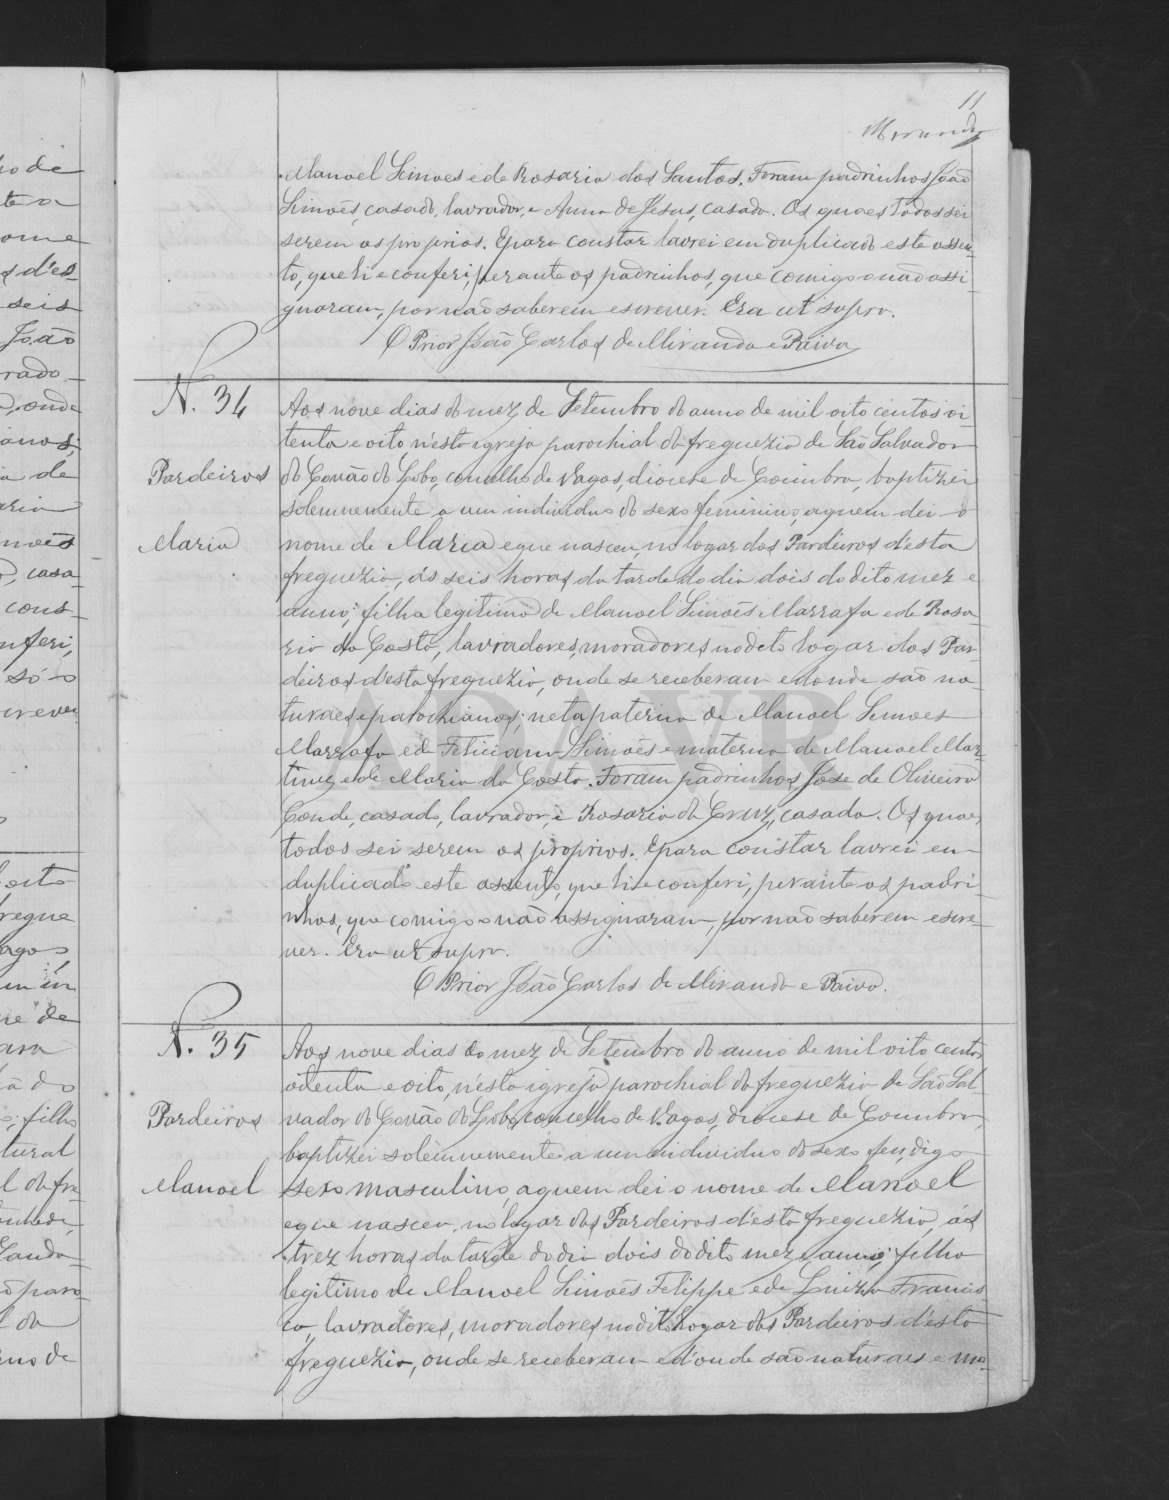 11
Miranda
Manoel Simoes e de Rosaria dos Santos. Foram padrinhos João
Simoēs, casado, lavrador, e Anna de Jesus, casada. Os quaes todos sei
serem os proprios. E para constar lavrei em duplicado este assen-
to, que li e conferi, perante os padrinhos, que comigo o não assi-
gnaram, por não saberem escrever. Era ut supra.
O Prior João Carlos de Miranda e Paiva
N. 34
Pardeiros
Maria
Aos nove dias do mez de Setembro do anno de mil oito centos oi-
tenta e oito, n'esta igreja parochial da freguezia de São Salvador
do Covão do Lobo, concelho de Vagos, diocese de Coimbra, baptizei
solemnemente a um individuo do sexo feminino, a quem dei o
nome de Maria e que nasceu, no logar dos Pardeiros d'esta
freguezia, ás seis horas da tarde do dia dois do dito mez e
anno; filha legitima de Manoel Simoēs Marrafa e de Rosa-
ria da Costa, lavradores, moradores no dito logar dos Par-
deiros d'esta freguezia, onde se receberam e donde são na-
turaes e parochianos; neta paterna de Manoel Simoes
Marrafa e de Feliciana Simoēs e materna de Manoel Mar-
tins e de Maria da Costa. Foram padrinhos José de Oliveira
Conde, casado, lavrador, e Rosaria da Cruz, casada. Os quaes
todos sei serem os proprios. E para constar lavrei em
duplicado este assento, que li e conferi, perante os padri-
nhos, que comigo o não assignaram, por não saberem escre-
ver. Era ut supra.
O Prior João Carlos de Miranda e Paiva.
N. 35
Pardeiros
Manoel
Aos nove dias do mez de Setembro do anno de mil oito centos
oitenta e oito, n'esta igreja parochial da freguezia de São Sal-
vador do Covão do Lobo, concelho de Vagos, diocese de Coimbra,
baptizei solemnemente a um individuo do sexo fem, digo
sexo masculino, a quem dei o nome de Manoel
e que nasceu, no logar dos Pardeiros d'esta freguezia, ás
trez horas da tarde do dia dois do dito mez e anno; filho
legitimo de Manoel Simoēs Felippe e de Luiza Francis-
ca, lavradores, moradores no dito logar dos Pardeiros d'esta
freguezia, onde se receberam e d'onde são naturaes e mo-
ADAVR